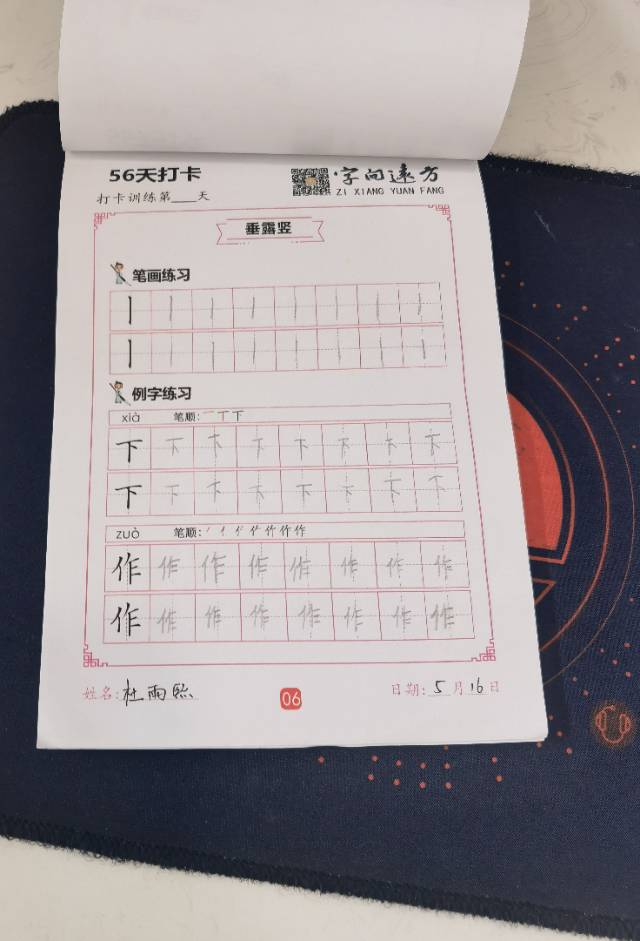 56天打卡
字间远方
打卡训练第___天
ZI XIANG YUAN FANG
垂露竖
笔画练习
例字练习
xià 笔顺: 一 丅 下
下 下 下 下 下 下 下 下
下 下 下 下 下 下 下 下
zuò 笔顺:
作 作 作 作 作 作 作 作
作 作 作 作 作 作 作 作
姓名: 杜雨熙
06
日期: 5月16日